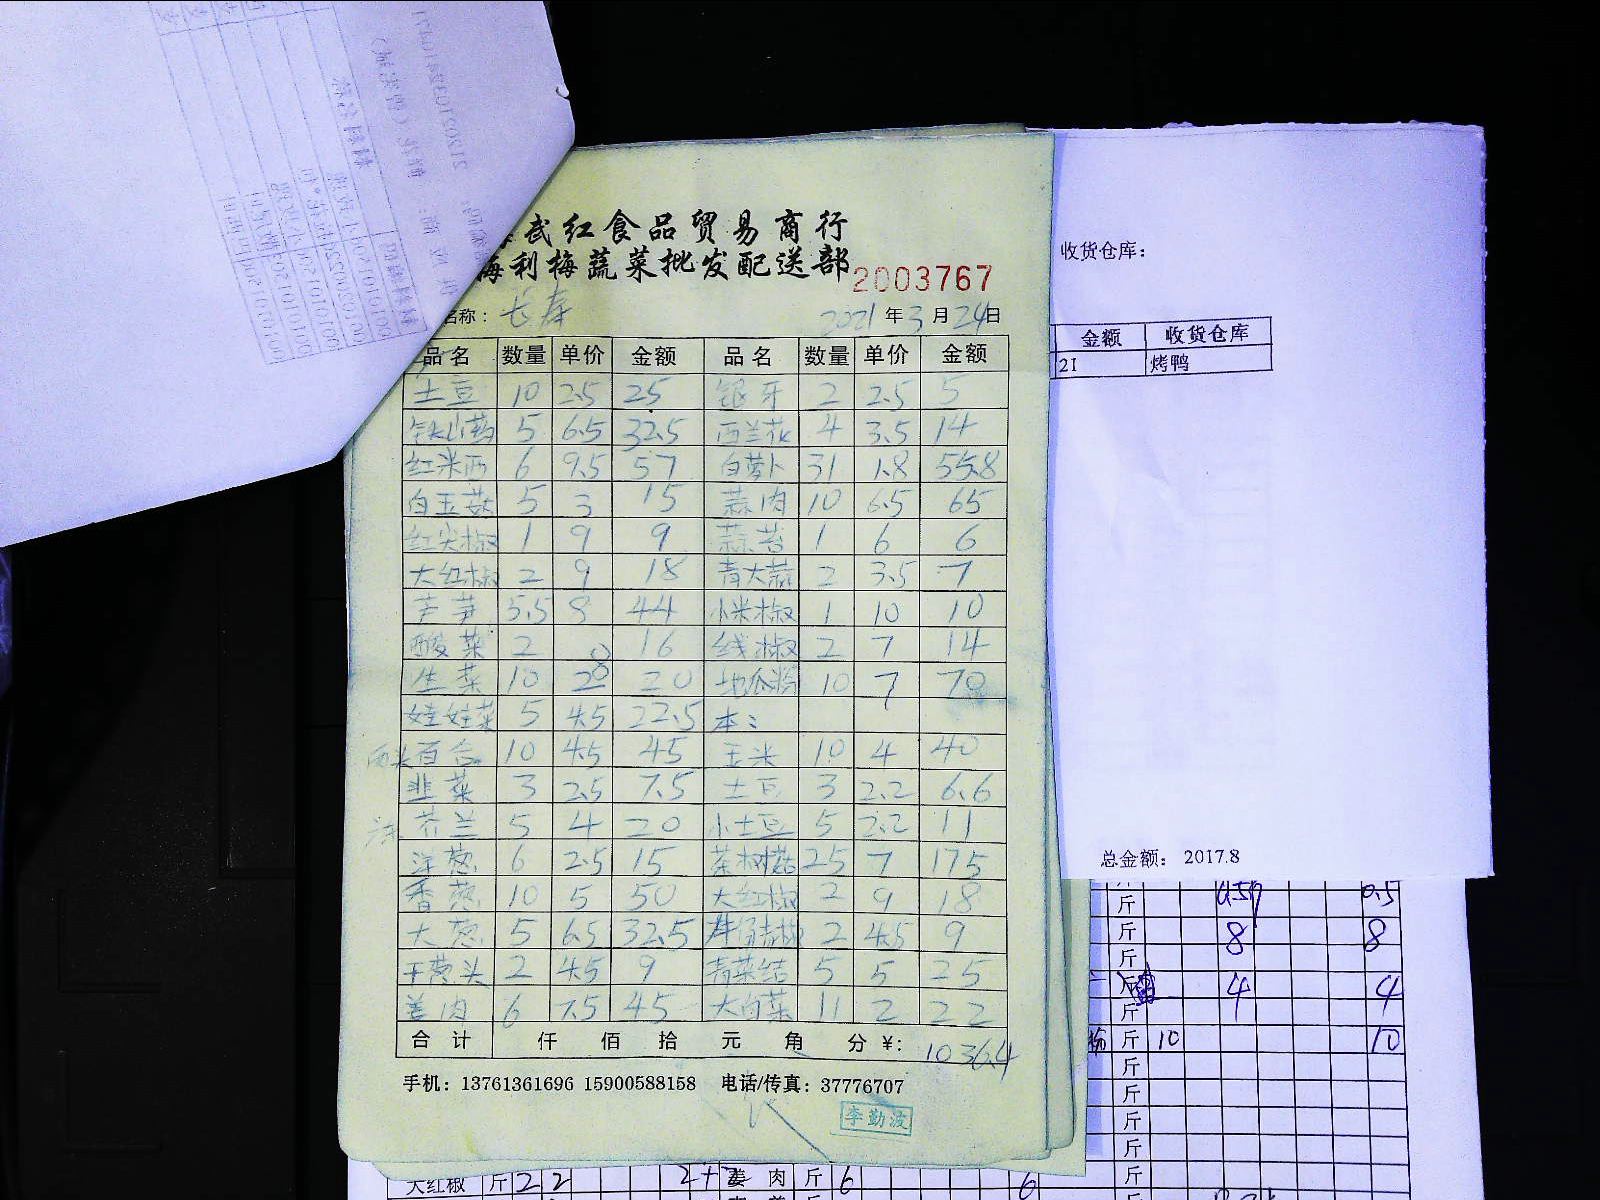 武红食品贸易商行
海利梅蔬菜批发配送部 2003767
名称： 长寿 2021年3月24日
品名 数量 单价 金额 品名 数量 单价 金额
土豆 10 2.5 25 银牙 2 2.5 5
铁山药 5 6.5 32.5 西兰花 4 3.5 14
红米西 6 9.5 57 白萝卜 31 1.8 55.8
白玉菇 5 3 15 蒜肉 10 6.5 65
红尖椒 1 9 9 蒜苔 1 6 6
大红椒 2 9 18 青大蒜 2 3.5 7
芦笋 5.5 8 44 小米椒 1 10 10
酸菜 2 8 16 线椒 2 7 14
生菜 10 2 20 地瓜粉 10 7 70
娃娃菜 5 4.5 22.5 本：
西芹百合 10 4.5 45 玉米 10 4 40
韭菜 3 2.5 7.5 土豆 3 2.2 6.6
芥兰 5 4 20 小土豆 5 2.2 11
洋葱 6 2.5 15 茶树菇 25 7 175
香葱 10 5 50 大红椒 2 9 18
大葱 5 6.5 32.5 2 4.5 9
干葱头 2 4.5 9 青菜结 5 5 25
姜肉 6 7.5 45 大白菜 11 2 22
合计 仟 佰 拾 元 角 分 ¥: 1036.4
手机：13761361696 15900588158 电话/传真：37776707
李勤波
收货仓库：
金额 收货仓库
21 烤鸭
总金额： 2017.8
斤 0.5
斤 8 8
斤
斤 4 4
斤
斤 10 10
斤
斤
斤
斤
大红椒 斤 22 2+2 姜肉 斤 6 6